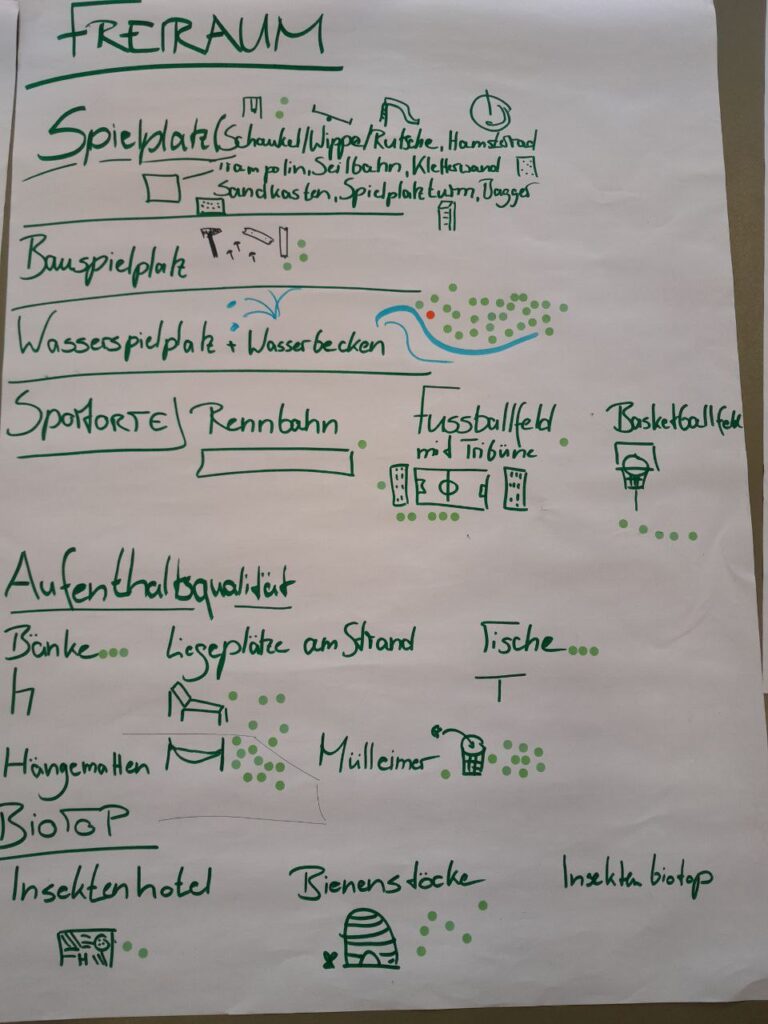 FREIRAUM
Spielplatz (Schaukel/Wippe/Rutsche, Hamsterrad
Trampolin, Seilbahn, Kletterwand
Sandkasten, Spielplatzturm, Bagger
Bauspielplatz
Wasserspielplatz + Wasserbecken
SPORTORTE Rennbahn Fussballfeld Basketballfeld
mit Tribüne
Aufenthaltsqualität
Bänke Liegeplätze am Strand Tische
Hängematten Mülleimer
BIOTOP
Insektenhotel Bienenstöcke Insektenbiotop